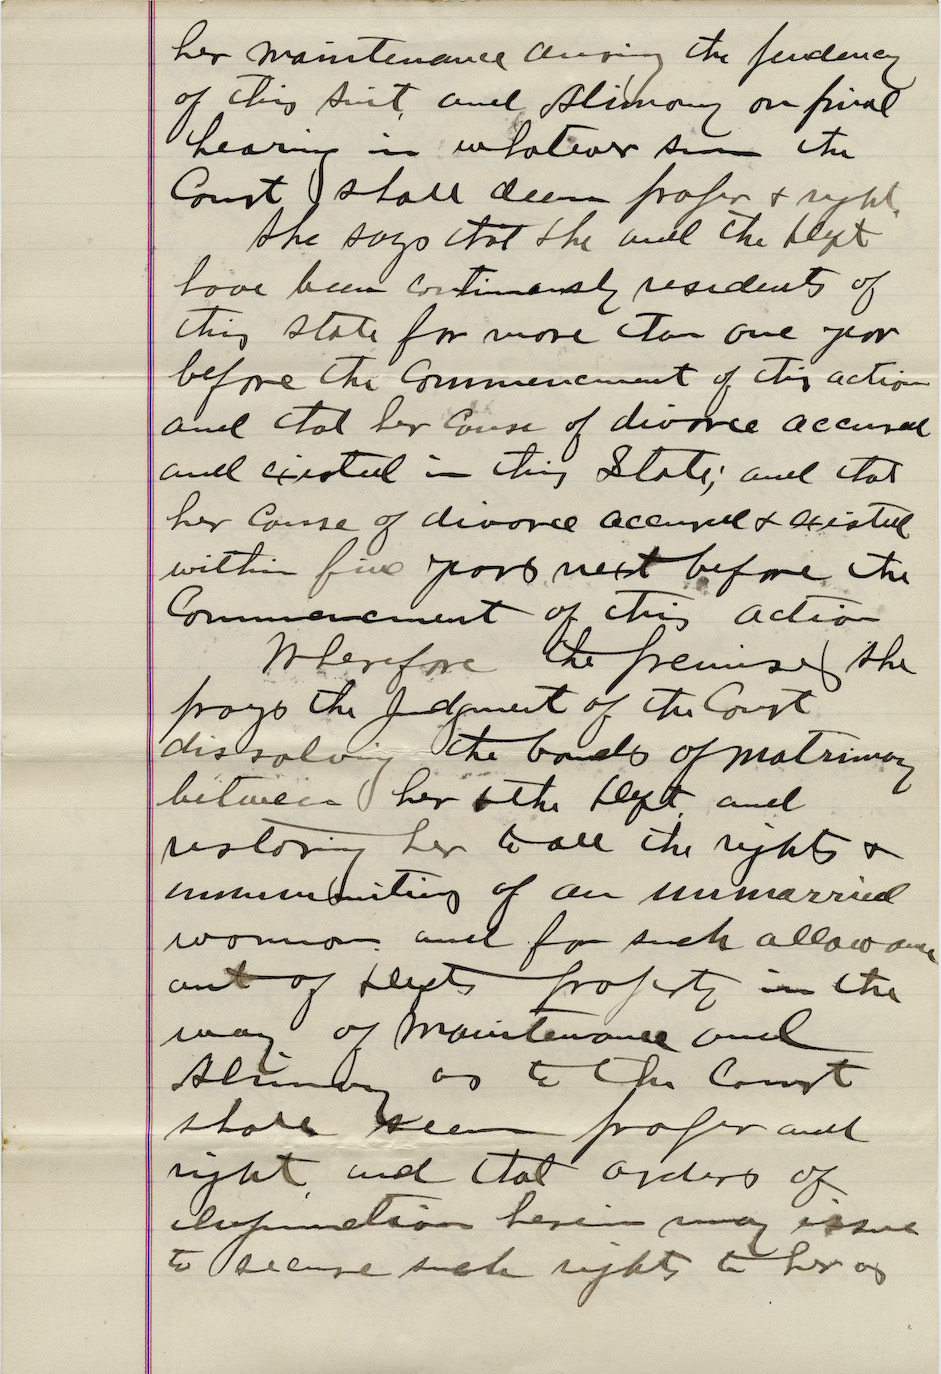 her maintenance during the pendency
of this suit, and Alimony on final
hearing in whatever sum the
Court shall deem proper & right.
She says that she and the Deft
have been continuously residents of
this State for more than one year
before the Commencement of this action
and that her Cause of divorce accrued
and existed in this State; and that
her Cause of divorce accrued & existed
within five years next before the
Commencement of this action
Wherefore the premises she
prays the Judgment of the Court
dissolving the bonds of matrimony
between her & the Deft, and
restoring her to all the rights &
immunities of an unmarried
woman and for such allowance
out of Defts property in the
way of Maintenance and
Alimony as to the Court
shall seem proper and
right, and that orders of
Injunction herein may issue
to secure such rights to her as